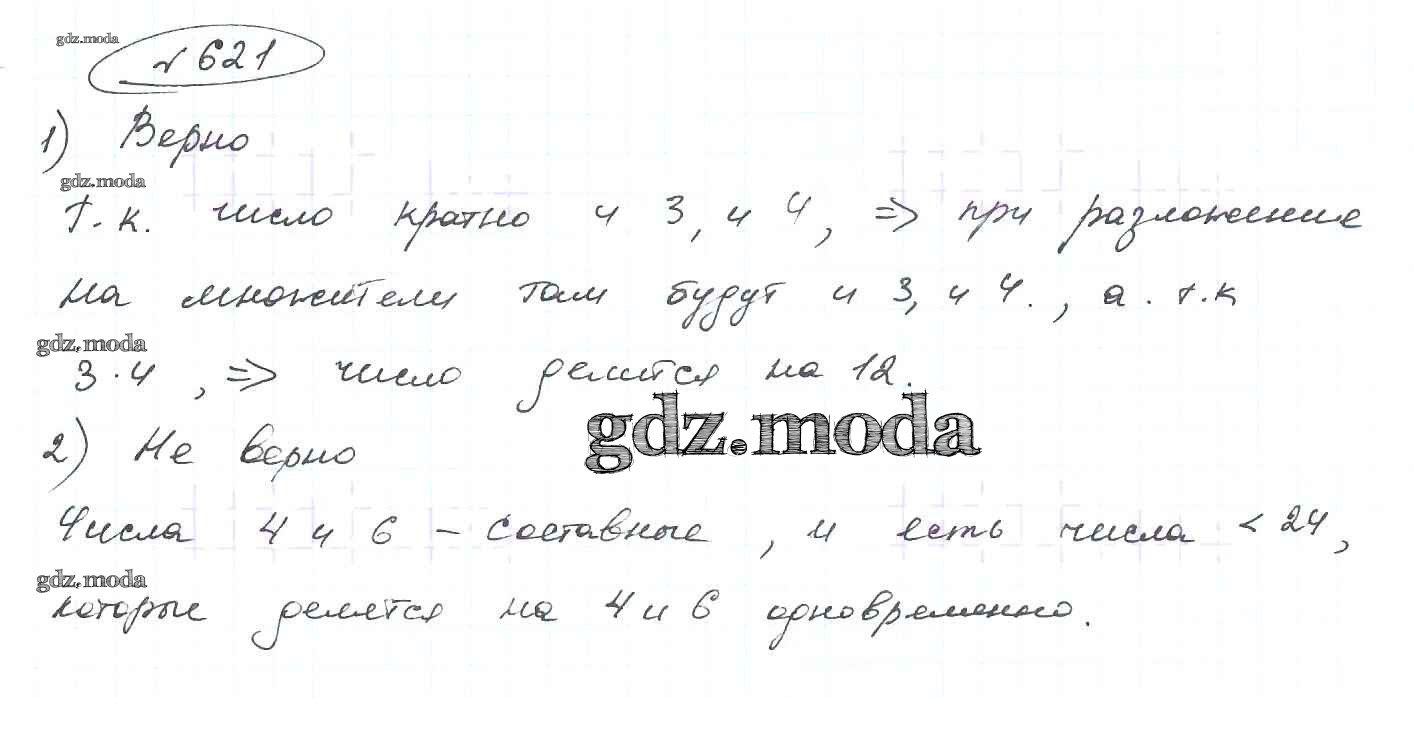 gdz.moda
№ 621
1) Верно
gdz.moda
т.к. число кратно и 3, и 4, => при разложение
на множители там будут и 3, и 4., а. т.к
gdz.moda
3·4, => число делится на 12.
gdz.moda
2) Не верно
Числа 4 и 6 - составные, и есть числа < 24,
gdz.moda
которые делятся на 4 и 6 одновременно.